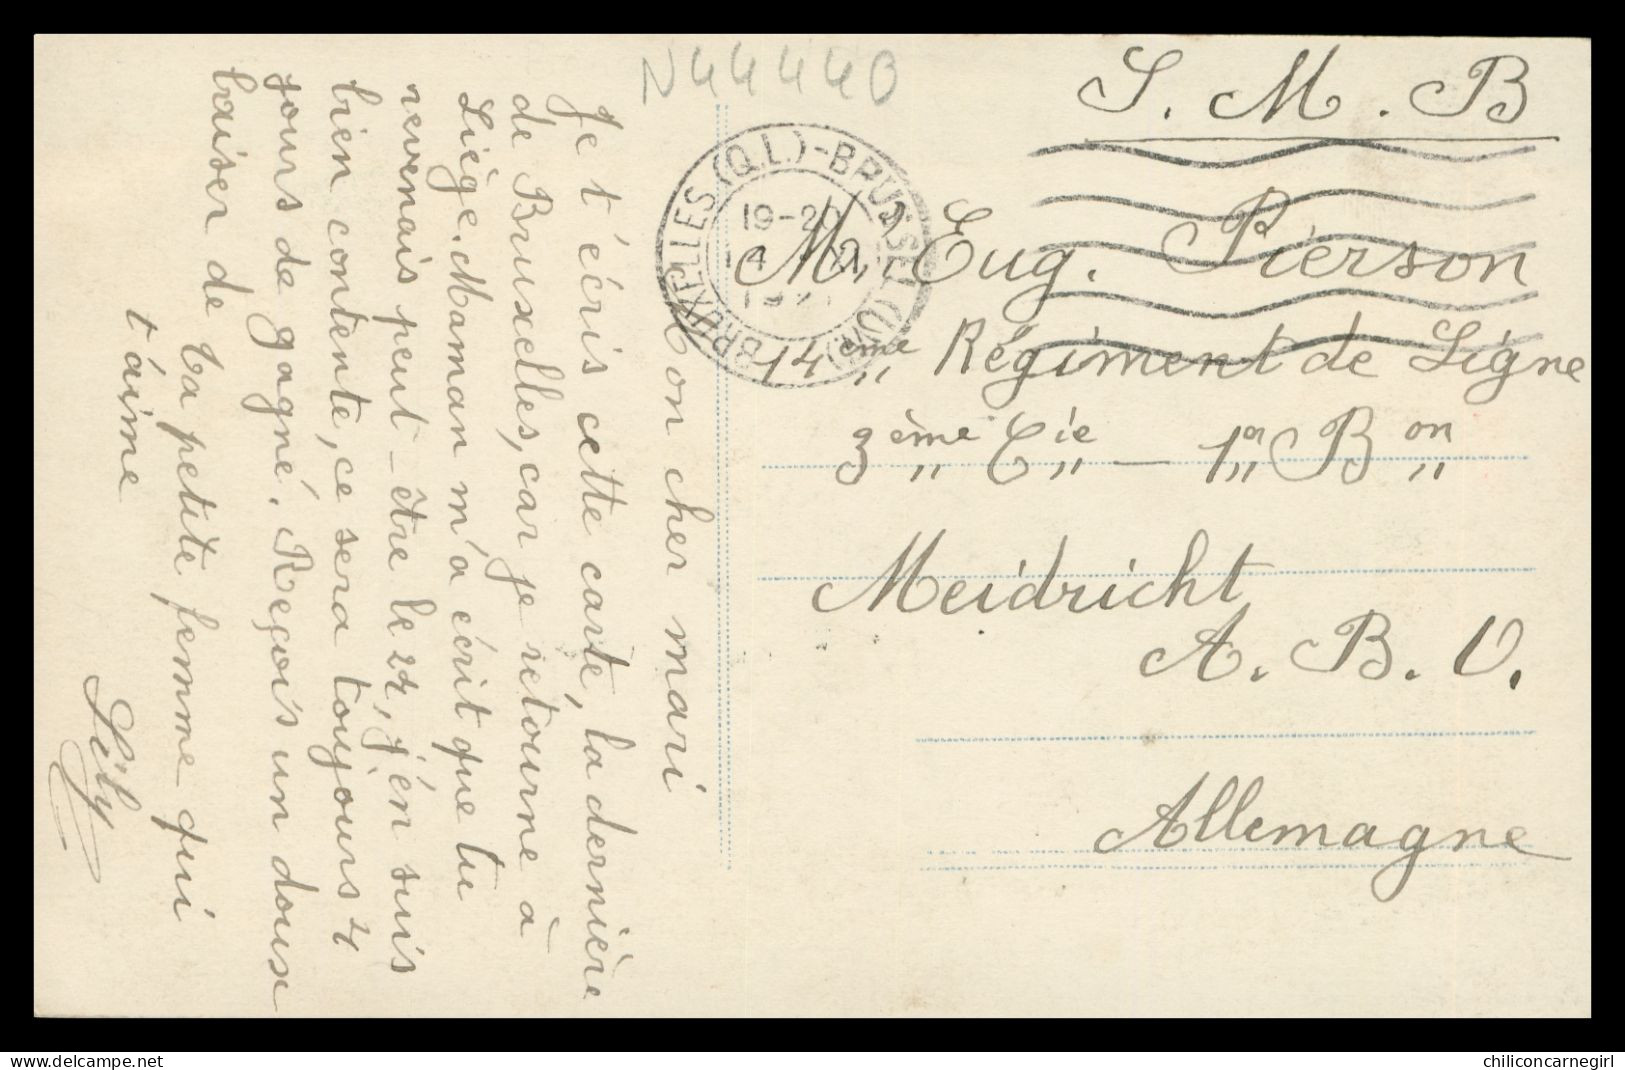 N44440
S. M. B
BRUXELLES (Q.L.) - BRUSSEL
19-20
14
Mr. Eug. Pierson
14ème Régiment de Ligne
3ème Cie — 1er Bon
Meidricht
A. B. O.
Allemagne
Mon cher mari
Je t'écris cette carte, la dernière
de Bruxelles, car je retourne à
Liège. Maman m'a écrit que tu
revenais peut-être le 24, j'en suis
bien contente, ce sera toujours 4
jours de gagné. Reçois un doux
baiser de ta petite femme qui
t'aime
Lily
chiliconcarnegirl
Delcampe.net